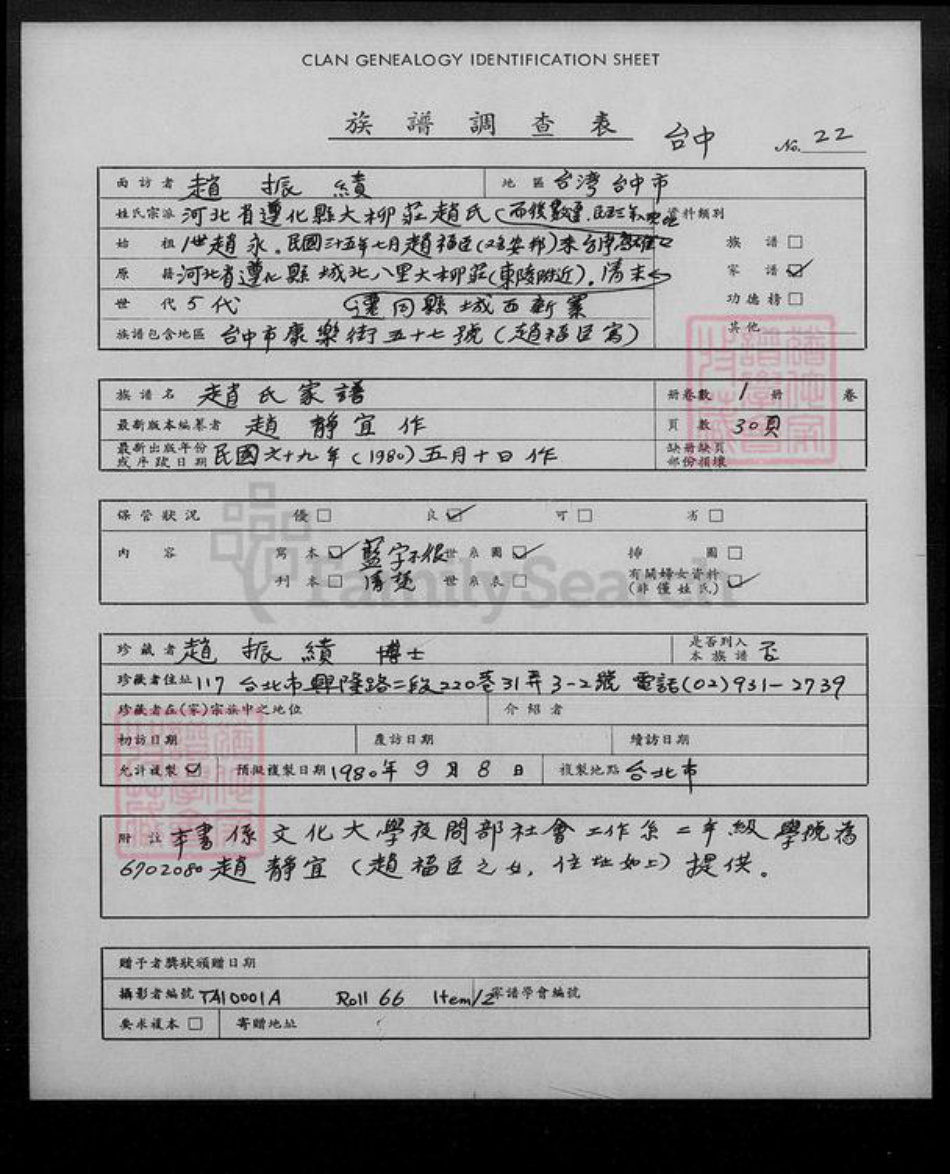 CLAN GENEALOGY IDENTIFICATION SHEET
族譜調查表 台中 No. 22
面訪者 趙振績 地區 台湾台中市
姓氏宗派 河北省遵化縣大柳莊趙氏 資料類別
始祖 1世趙永.民國三十五年七月趙福臣 族譜□
原籍 河北省遵化縣城北八里大柳莊(東陵附近).清末 家譜☑
世代 5代 遷同縣城西新寨 功德榜□
族譜包含地區 台中市康樂街五十七號(趙福臣寓) 其他
族譜名 趙氏家譜 册卷數 1 册 卷
最新版本編纂者 趙靜宜作 頁數 30頁
最新出版年份或序跋日期 民國六十九年(1980)五月十日作 缺册缺頁部份損壞
保管狀況 優□ 良☑ 可□ 劣□
內容 寫本☑ 藍字不很清楚 世系圖☑ 插圖□
刊本□ 世系表□ 有關婦女資料(非僅姓氏)☑
FamilySearch
珍藏者 趙振績 博士 是否列入本族譜 否
珍藏者住址 117 台北市興隆路二段220巷31弄3-2號 電話(02)931-2739
珍藏者在(家)宗族中之地位 介紹者
初訪日期 覆訪日期 續訪日期
允許複製☑ 預擬複製日期 1980年9月8日 複製地點 台北市
附註 本書係文化大學夜間部社會工作系二年級學號為
6702080趙靜宜(趙福臣之女,住址如上)提供。
贈予者獎狀頒贈日期
攝影者編號 TA10001A Roll 66 Item 12 宗譜學會編號
要求複本□ 寄贈地址